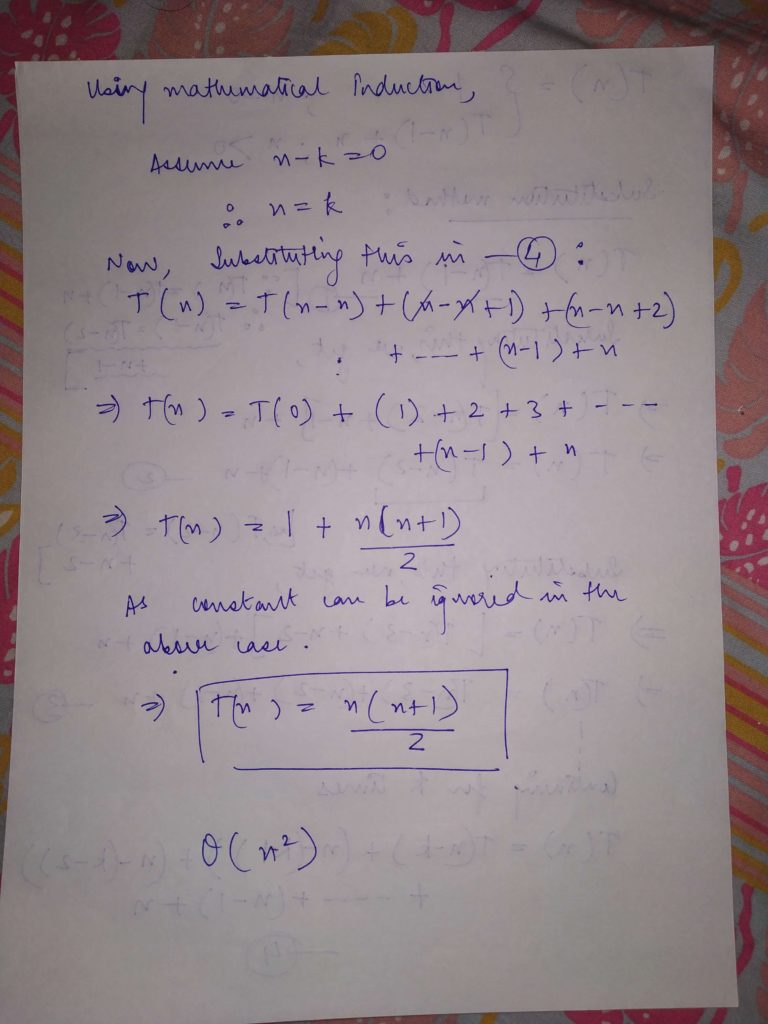 Using mathematical Induction,
Assume n-k=0
∴ n=k
Now, Substituting this in —④ :
T(n) = T(n-n) + (n-n+1) + (n-n+2)
+ --- + (n-1) + n
⇒ T(n) = T(0) + (1) + 2 + 3 + ---
+(n-1) + n
⇒ T(n) = 1 + n(n+1)/2
As constant can be ignored in the
above case.
⇒ T(n) = n(n+1)/2
θ(n²)